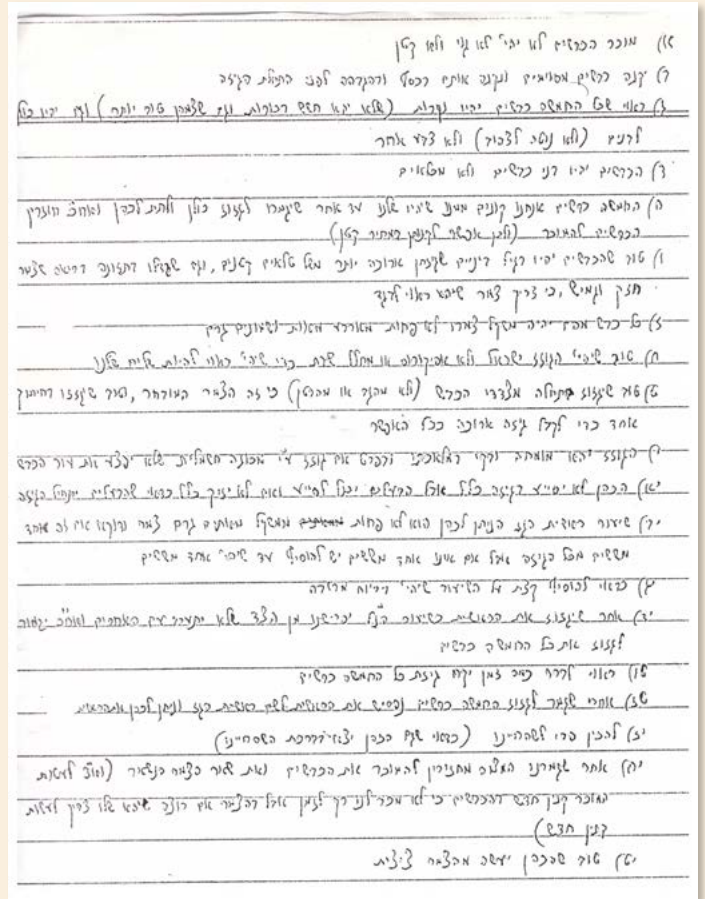 א) מוכר הכבשים לא יהי' לא גוי ולא קטן
ב) יקנה כבשים מסוימים ונקנה אותם בכסף ובהגבהה לפני התחלת הגיזה
ג) ראוי שכל החמשה כבשים יהיו נקבות (שלא יהא חשש בכורות וגם שצמרן טוב יותר) וגם יהיו כולן
לבנים (לא נוטה לצהוב) ולא צבע אחר
ד) הכבשים יהיו בני כבשים ולא מכלאים
ה) החמשה כבשים אנחנו קונים ממנו שיהיו שלנו עד אחר שיגמרו לגזוז כולן ולתת לכהן ואח"כ חוזרין
הכבשים למוכר (ולכן אפשר לקנותן במחיר קטן)
ו) טוב שהכבשים יהיו רגיל בינויים שגזתן ארוכה יותר משל טלאים קטנים, וגם שגודלו בתזונה בריאה שצמר
חזק וגמיש, כי צריך צמר שיהא ראוי לבגד
ז) כל כבש מהם יהיה משקל צמרו לא פחות מארבע מאות ושמונים גרם
ח) טוב שיהי' הגוזז ישראל ולא אפיקורוס או מחלל שבת כדי שיהי' ראוי להיות שליח שלנו
ט) טוב שיגזוז בתחלה מצדדי הכבש (ולא מהגב או מהבטן) כי זה הצמר המובחר, וטוב שיגזוז בחיתוך
אחד כדי לקבל גיזה ארוכה ככל האפשר
י) הגוזז יהא מומחה ובקי במלאכתו ובפרט אם גוזז ע"י מכונה חשמלית שלא יפצע את עור הכבש
יא) הכהן לא יסייע בגיזה כלל אבל הבעלים יכול לסייע ואם לא יזיק כלל כדאי שהבעלים יתחיל הגיזה
יב) שיעור ראשית הגז הניתן לכהן הוא לא פחות ממשקל מאתים גרם צמר ודוקא אם זה אחד
מששים מכל הגיזה אבל אם אינו אחד מששים יש להוסיף עד שיהי' אחד מששים
יג) כדאי להוסיף קצת על השיעור שיהי' בריוח מרובה
יד) אחר שיגזוז את הראשית כשיעור הנ"ל יפרישנו מן הצד שלא יתערב עם האחרים ואח"כ יגמור
לגזוז את כל החמשה כבשים
טו) ראוי לברר כמה זמן יקח גיזת כל החמשה כבשים
טז) אחרי שנגמר לגזוז החמשה כבשים נפריש את הראשית לשם ראשית הגז וניתן לכהן את הראשית
יז) להכין פרי לשהחיינו (כדאי שגם הכהן יצא בברכת השהחיינו)
יח) אחר שגמרנו המצוה מחזירין להמוכר את הכבשים ואת שאר הצמר הנשאר (וא"צ לעשות
המוכר קנין חדש בהכבשים כי לא מכר לנו רק לזמן אבל בהצמר אם רוצה שיהא שלו צריך לעשות
קנין חדש)
יט) טוב שהכהן יעשה מהצמר ציצית